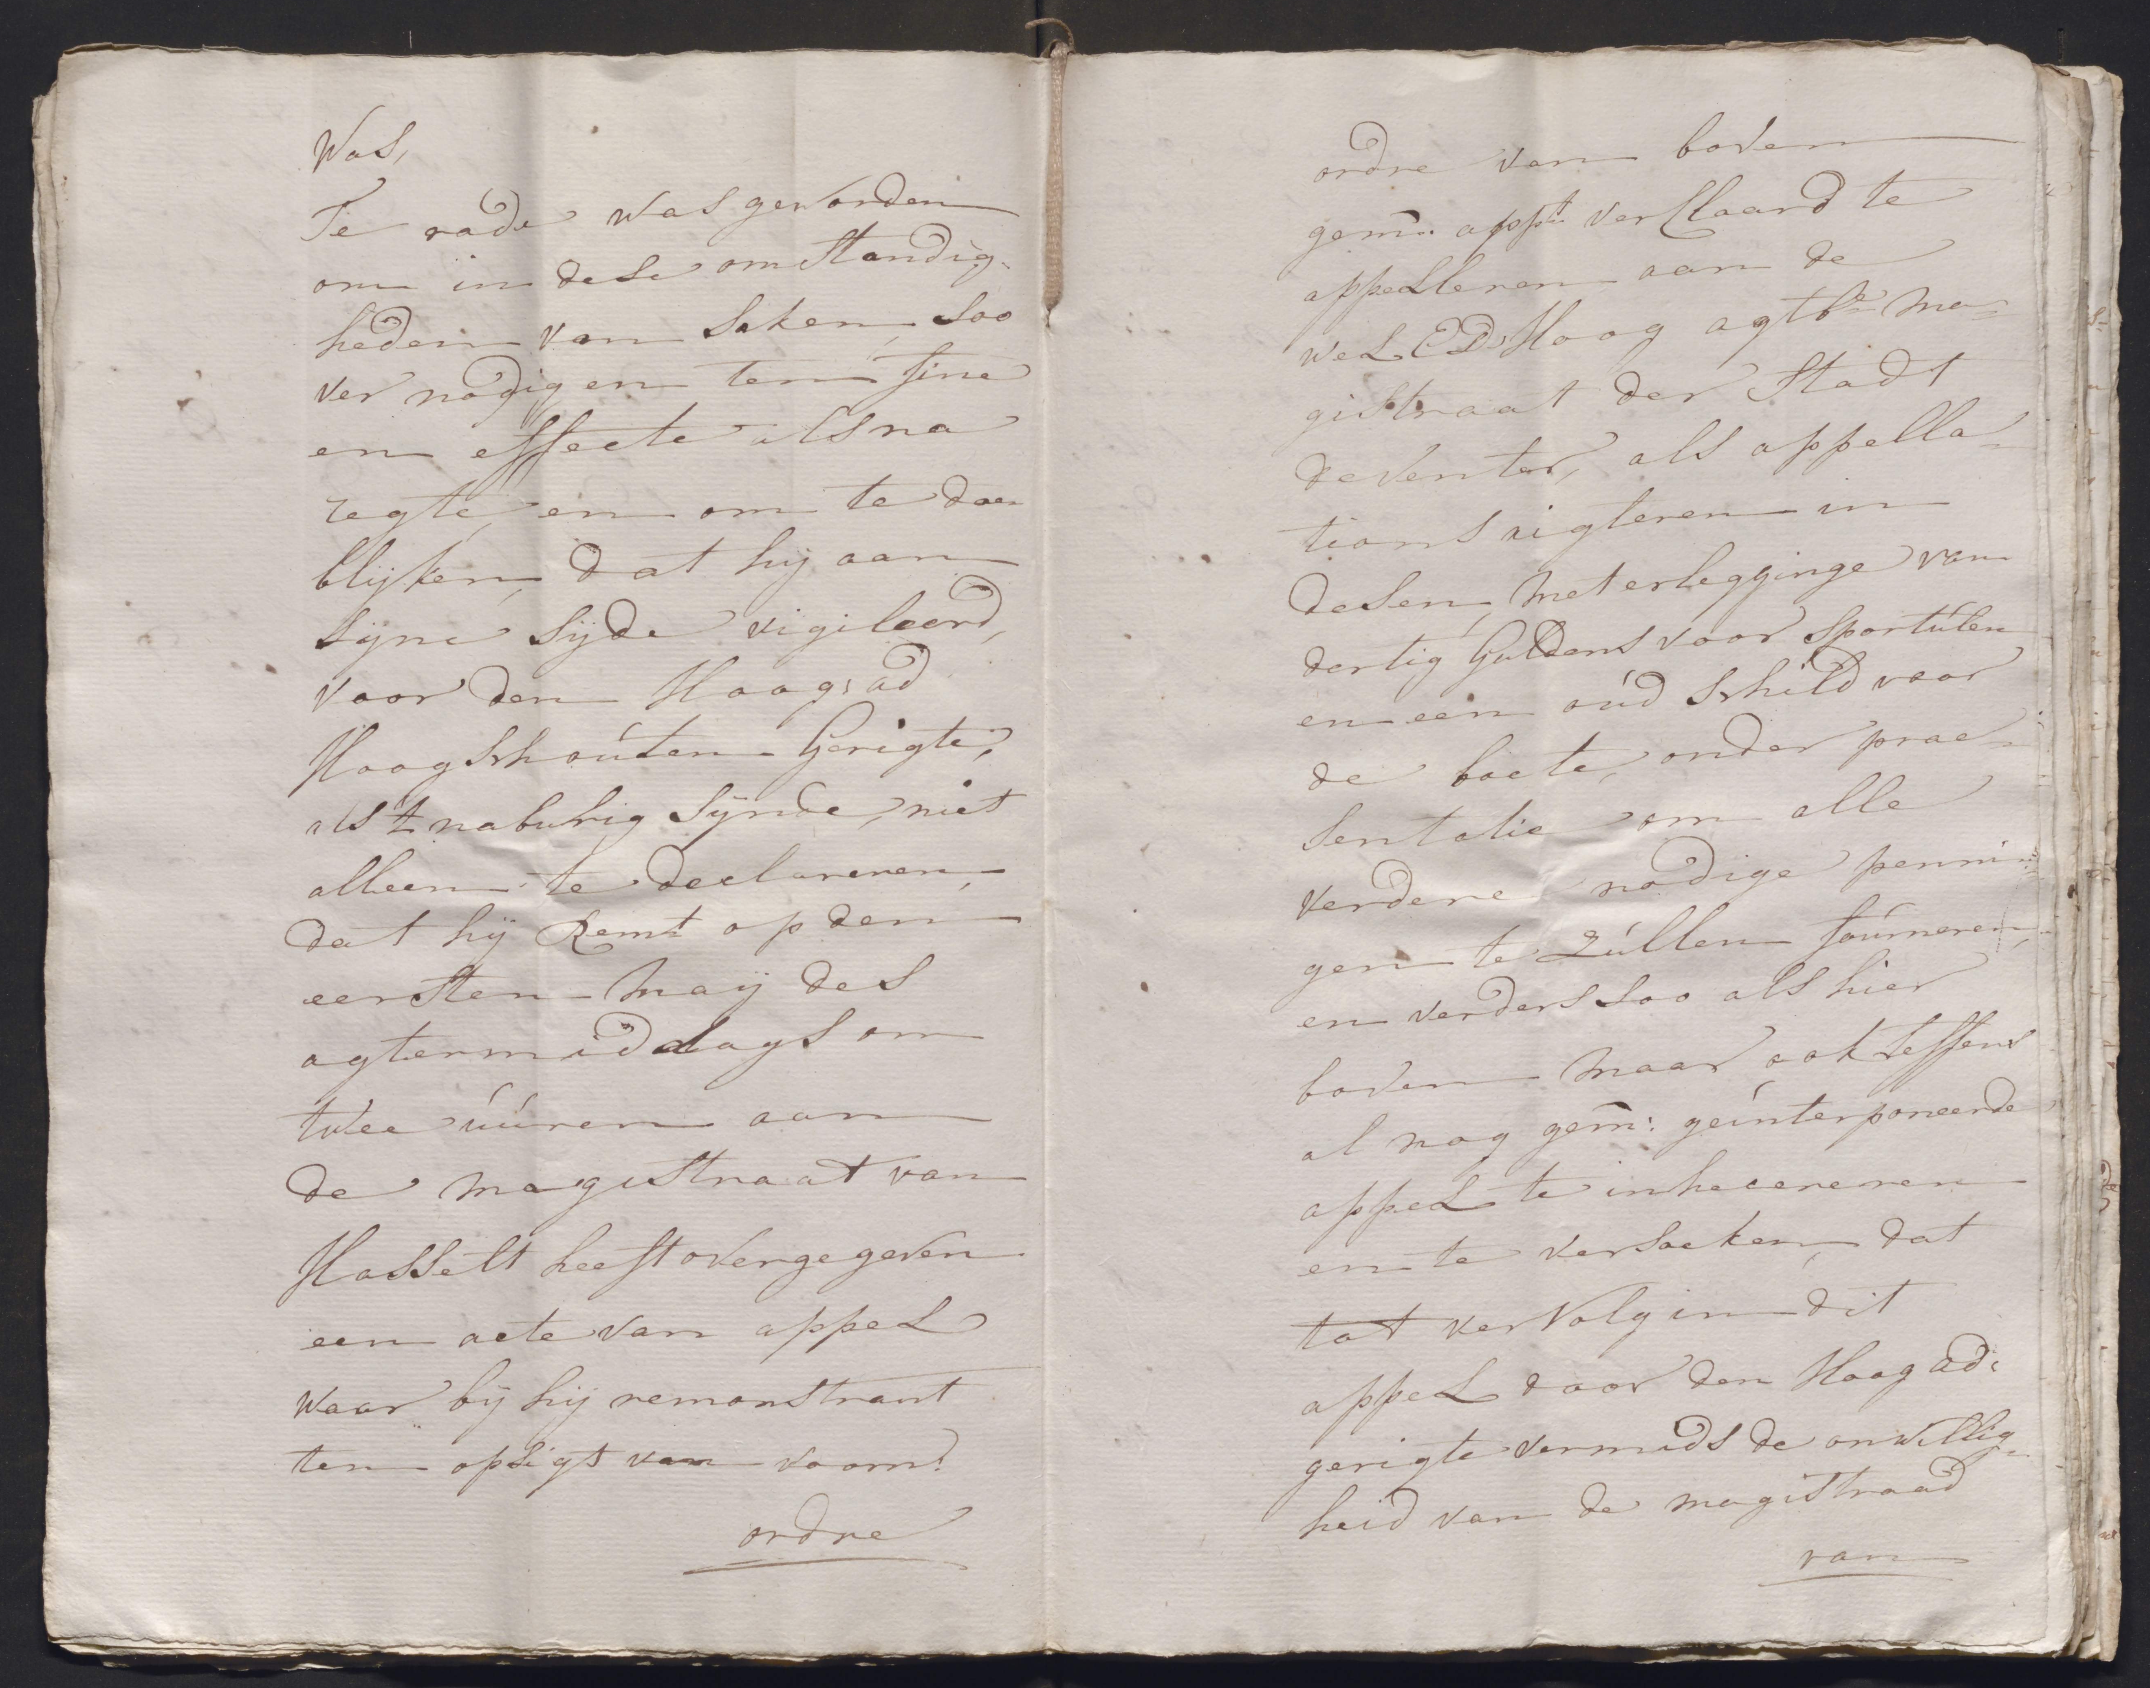 Was,
Te rade was geworden
om in dese omstandig-
heden van saken, soo
ver nodig en ten fine
en effecte als na
regte, en om te doen
blijken, dat hij aan
sijne sijde vigileerd,
voor den Hoog: ad
Hoog Schouten Gerigte,
als 't naburig sijnde, niet
alleen te declareren,
dat hij Remt op den
eersten Maij des
agtermiddags om
twee uúren aan
de magistraat van
Hasselt heeft overgegeven
een acte van appel
waar bij hij remonstrant
ten opsigt van voorn:
ordre
ordre van boven
gem: appt verklaard te
appelleren aan de
wel Ed: Hoog agtbe Ma-
gistraat der Stadt
deventer, als appella-
tions rigteren in
desen, met erlegginge van
dertig Guldens voor Sportúlen
en een oúd Schild voor
de boete, onder prae-
sentatie om alle
verdere nodige pennin-
gen te zúllen foúrneren,
en verders soo als hier
boven maar ook teffens
al nog gem: geinterponeerde
appel te inhaereren
en te versoeken, dat
tot vervolg in dit
appel door den Hoog ad:
gerigte vermids de onwillig-
heid van de magistraad
van